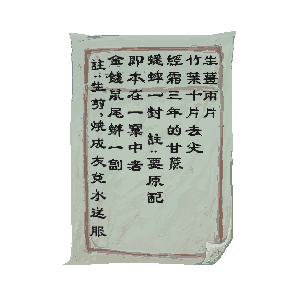 生薑兩片
竹葉十片去尖
經霜三年的甘蔗
蟋蟀一對 註：要原配
即本在一窠中者
金錢鼠尾辮一副
註：生剪，燒成灰兌水送服